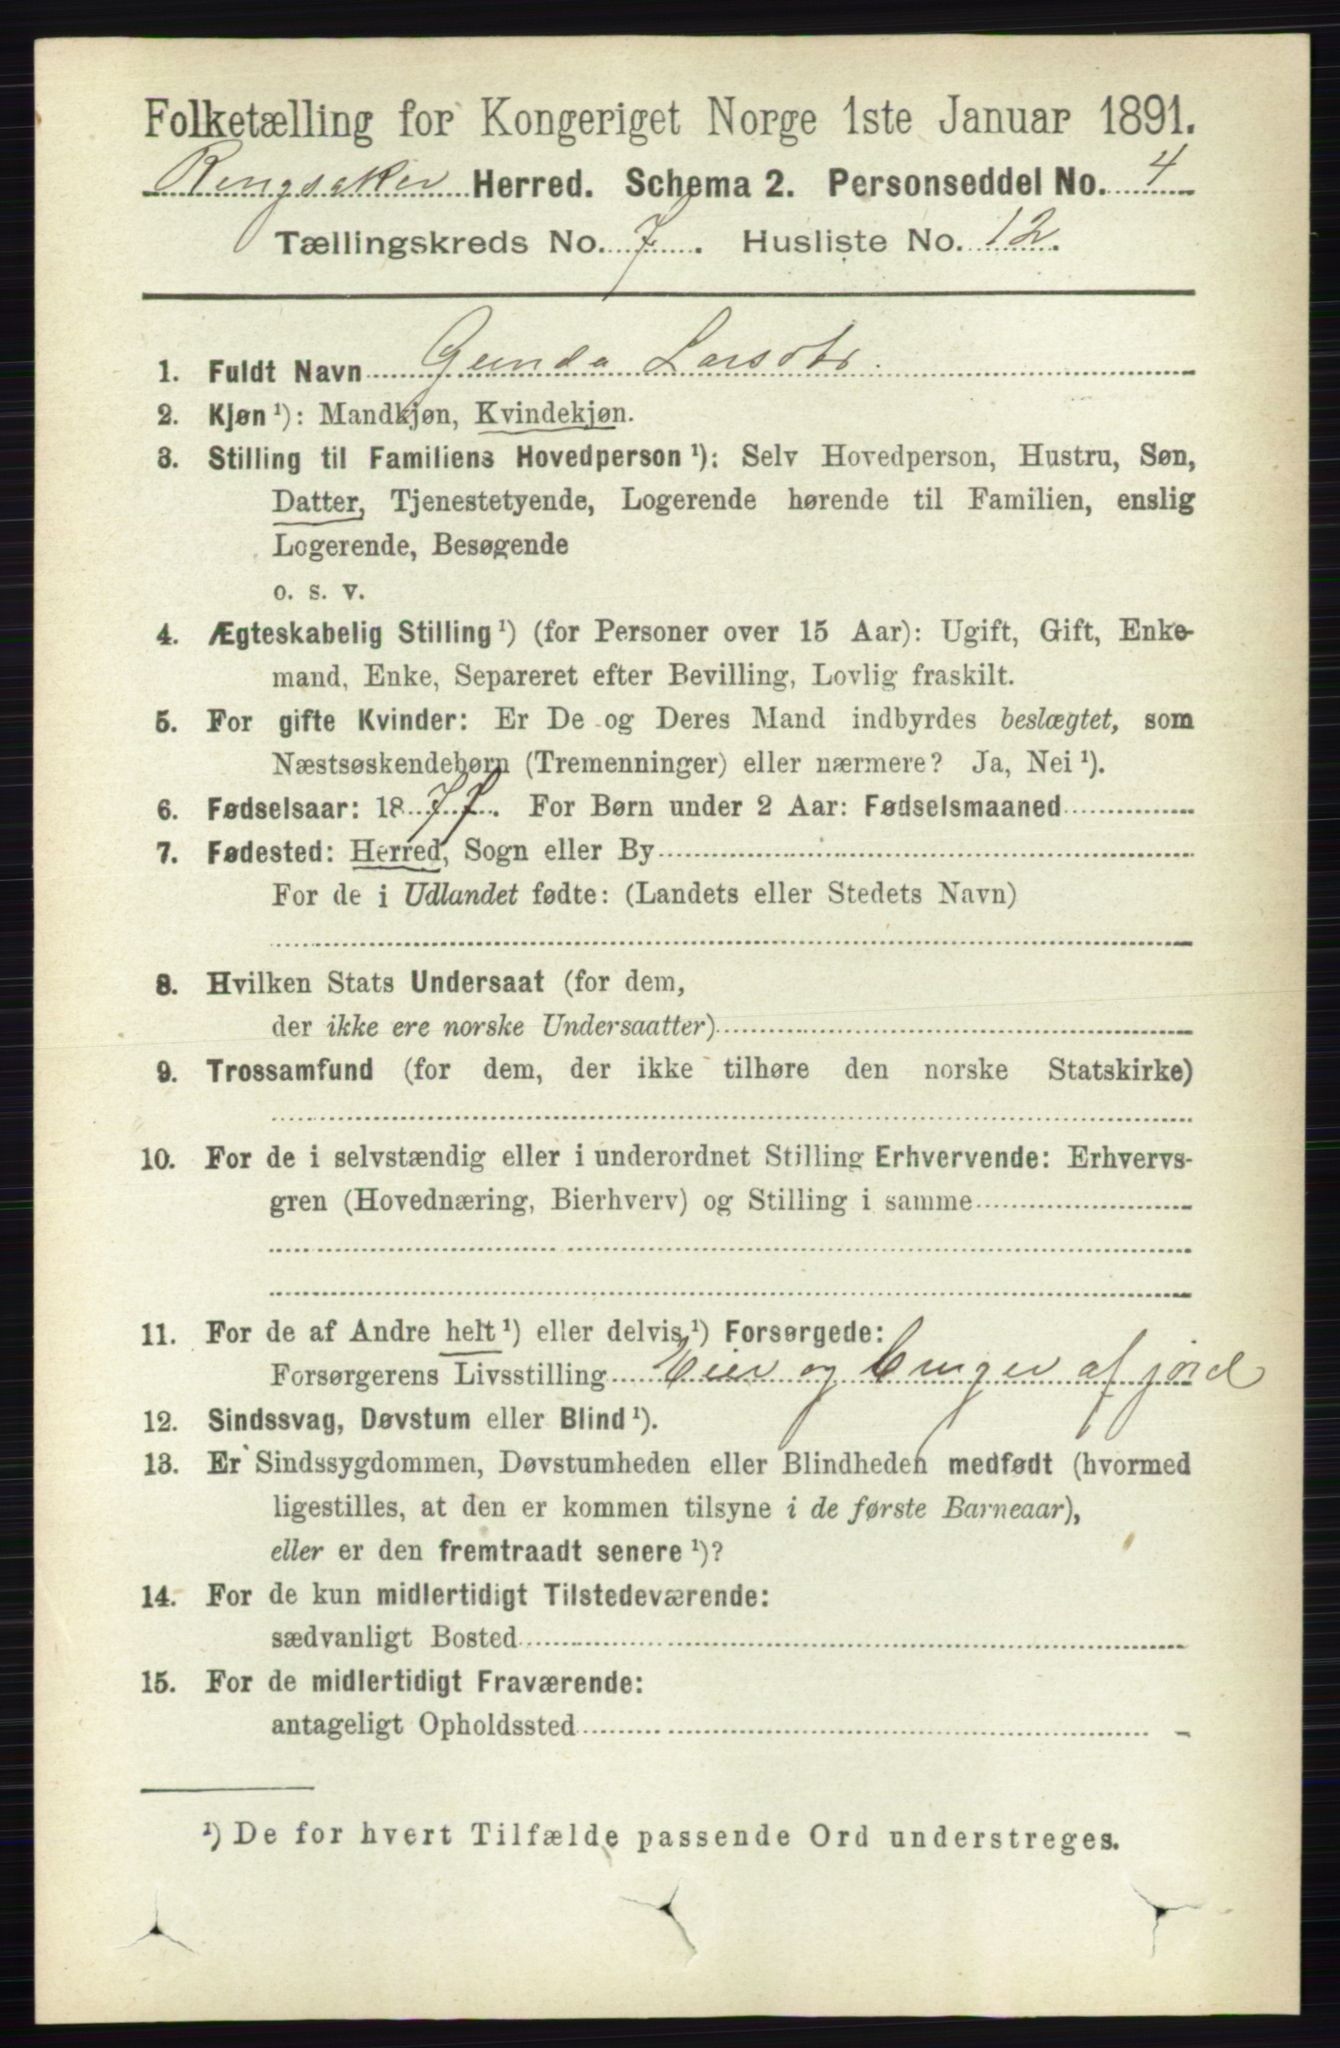 Folketælling for Kongeriget Norge 1ste Januar 1891.
Ringsaker Herred. Schema 2. Personseddel No. 4
Tællingskreds No. 7. Husliste No. 12.
1. Fuldt Navn Gunda Larsdtr.
2. Kjøn ¹): Mandkjøn, Kvindekjøn.
3. Stilling til Familiens Hovedperson ¹): Selv Hovedperson, Hustru, Søn,
Datter, Tjenestetyende, Logerende hørende til Familien, enslig
Logerende, Besøgende
o. s. v.
4. Ægteskabelig Stilling ¹) (for Personer over 15 Aar): Ugift, Gift, Enke-
mand, Enke, Separeret efter Bevilling, Lovlig fraskilt.
5. For gifte Kvinder: Er De og Deres Mand indbyrdes beslægtet, som
Næstsøskendebørn (Tremenninger) eller nærmere? Ja, Nei ¹).
6. Fødselsaar: 1877. For Børn under 2 Aar: Fødselsmaaned
7. Fødested: Herred, Sogn eller By
For de i Udlandet fødte: (Landets eller Stedets Navn)
8. Hvilken Stats Undersaat (for dem,
der ikke ere norske Undersaatter)
9. Trossamfund (for dem, der ikke tilhøre den norske Statskirke)
10. For de i selvstændig eller i underordnet Stilling Erhvervende: Erhvervs-
gren (Hovednæring, Bierhverv) og Stilling i samme
11. For de af Andre helt ¹) eller delvis ¹) Forsørgede:
Forsørgerens Livsstilling Eier og bruger af jord
12. Sindssvag, Døvstum eller Blind ¹).
13. Er Sindssygdommen, Døvstumheden eller Blindheden medfødt (hvormed
ligestilles, at den er kommen tilsyne i de første Barneaar),
eller er den fremtraadt senere ¹)?
14. For de kun midlertidigt Tilstedeværende:
sædvanligt Bosted
15. For de midlertidigt Fraværende:
antageligt Opholdssted
¹) De for hvert Tilfælde passende Ord understreges.